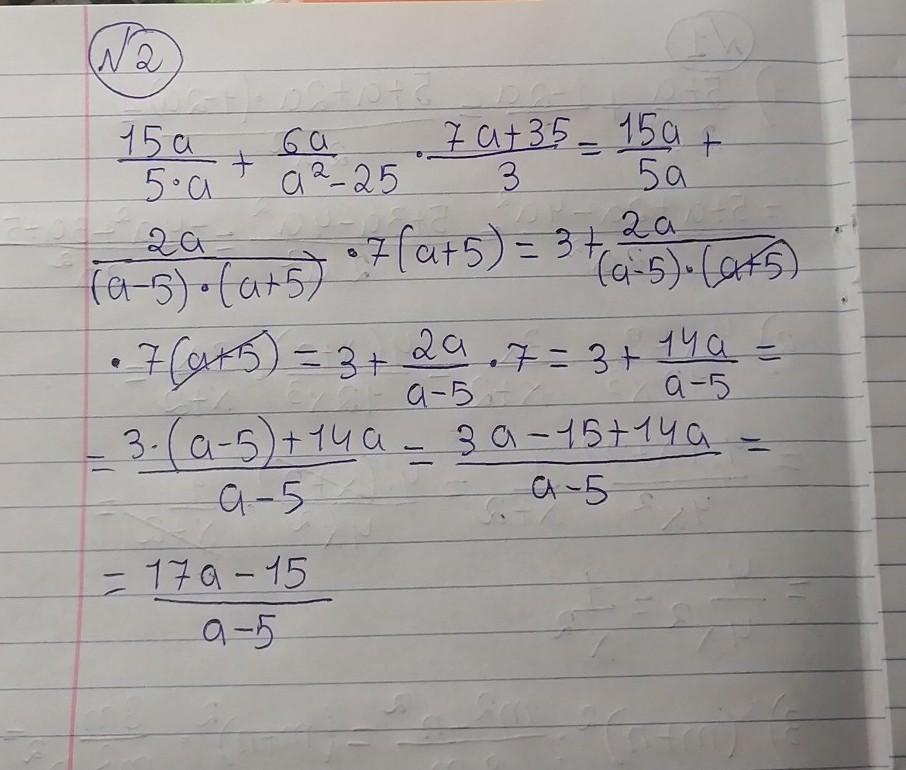 №2
15a/5·a + 6a/a²-25 · 7a+35/3 = 15a/5a +
2a/(a-5)·(a+5) · 7(a+5) = 3 + 2a/(a-5)·(a+5)
· 7(a+5) = 3 + 2a/a-5 · 7 = 3 + 14a/a-5 =
= 3·(a-5)+14a/a-5 = 3a-15+14a/a-5 =
= 17a-15/a-5